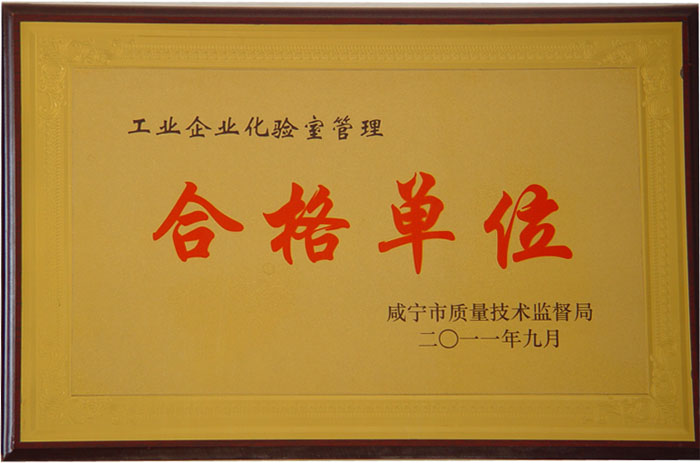 工业企业化验室管理
合格单位
咸宁市质量技术监督局
二〇一一年九月